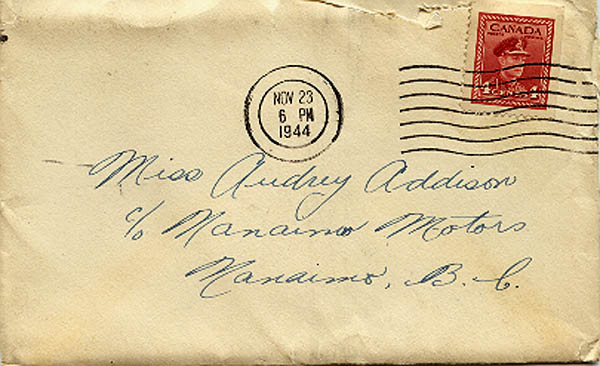 CANADA
4 CENTS 4
NOV 23
6 PM
1944
Miss Audrey Addison
c/o Nanaimo Motors
Nanaimo, B.C.